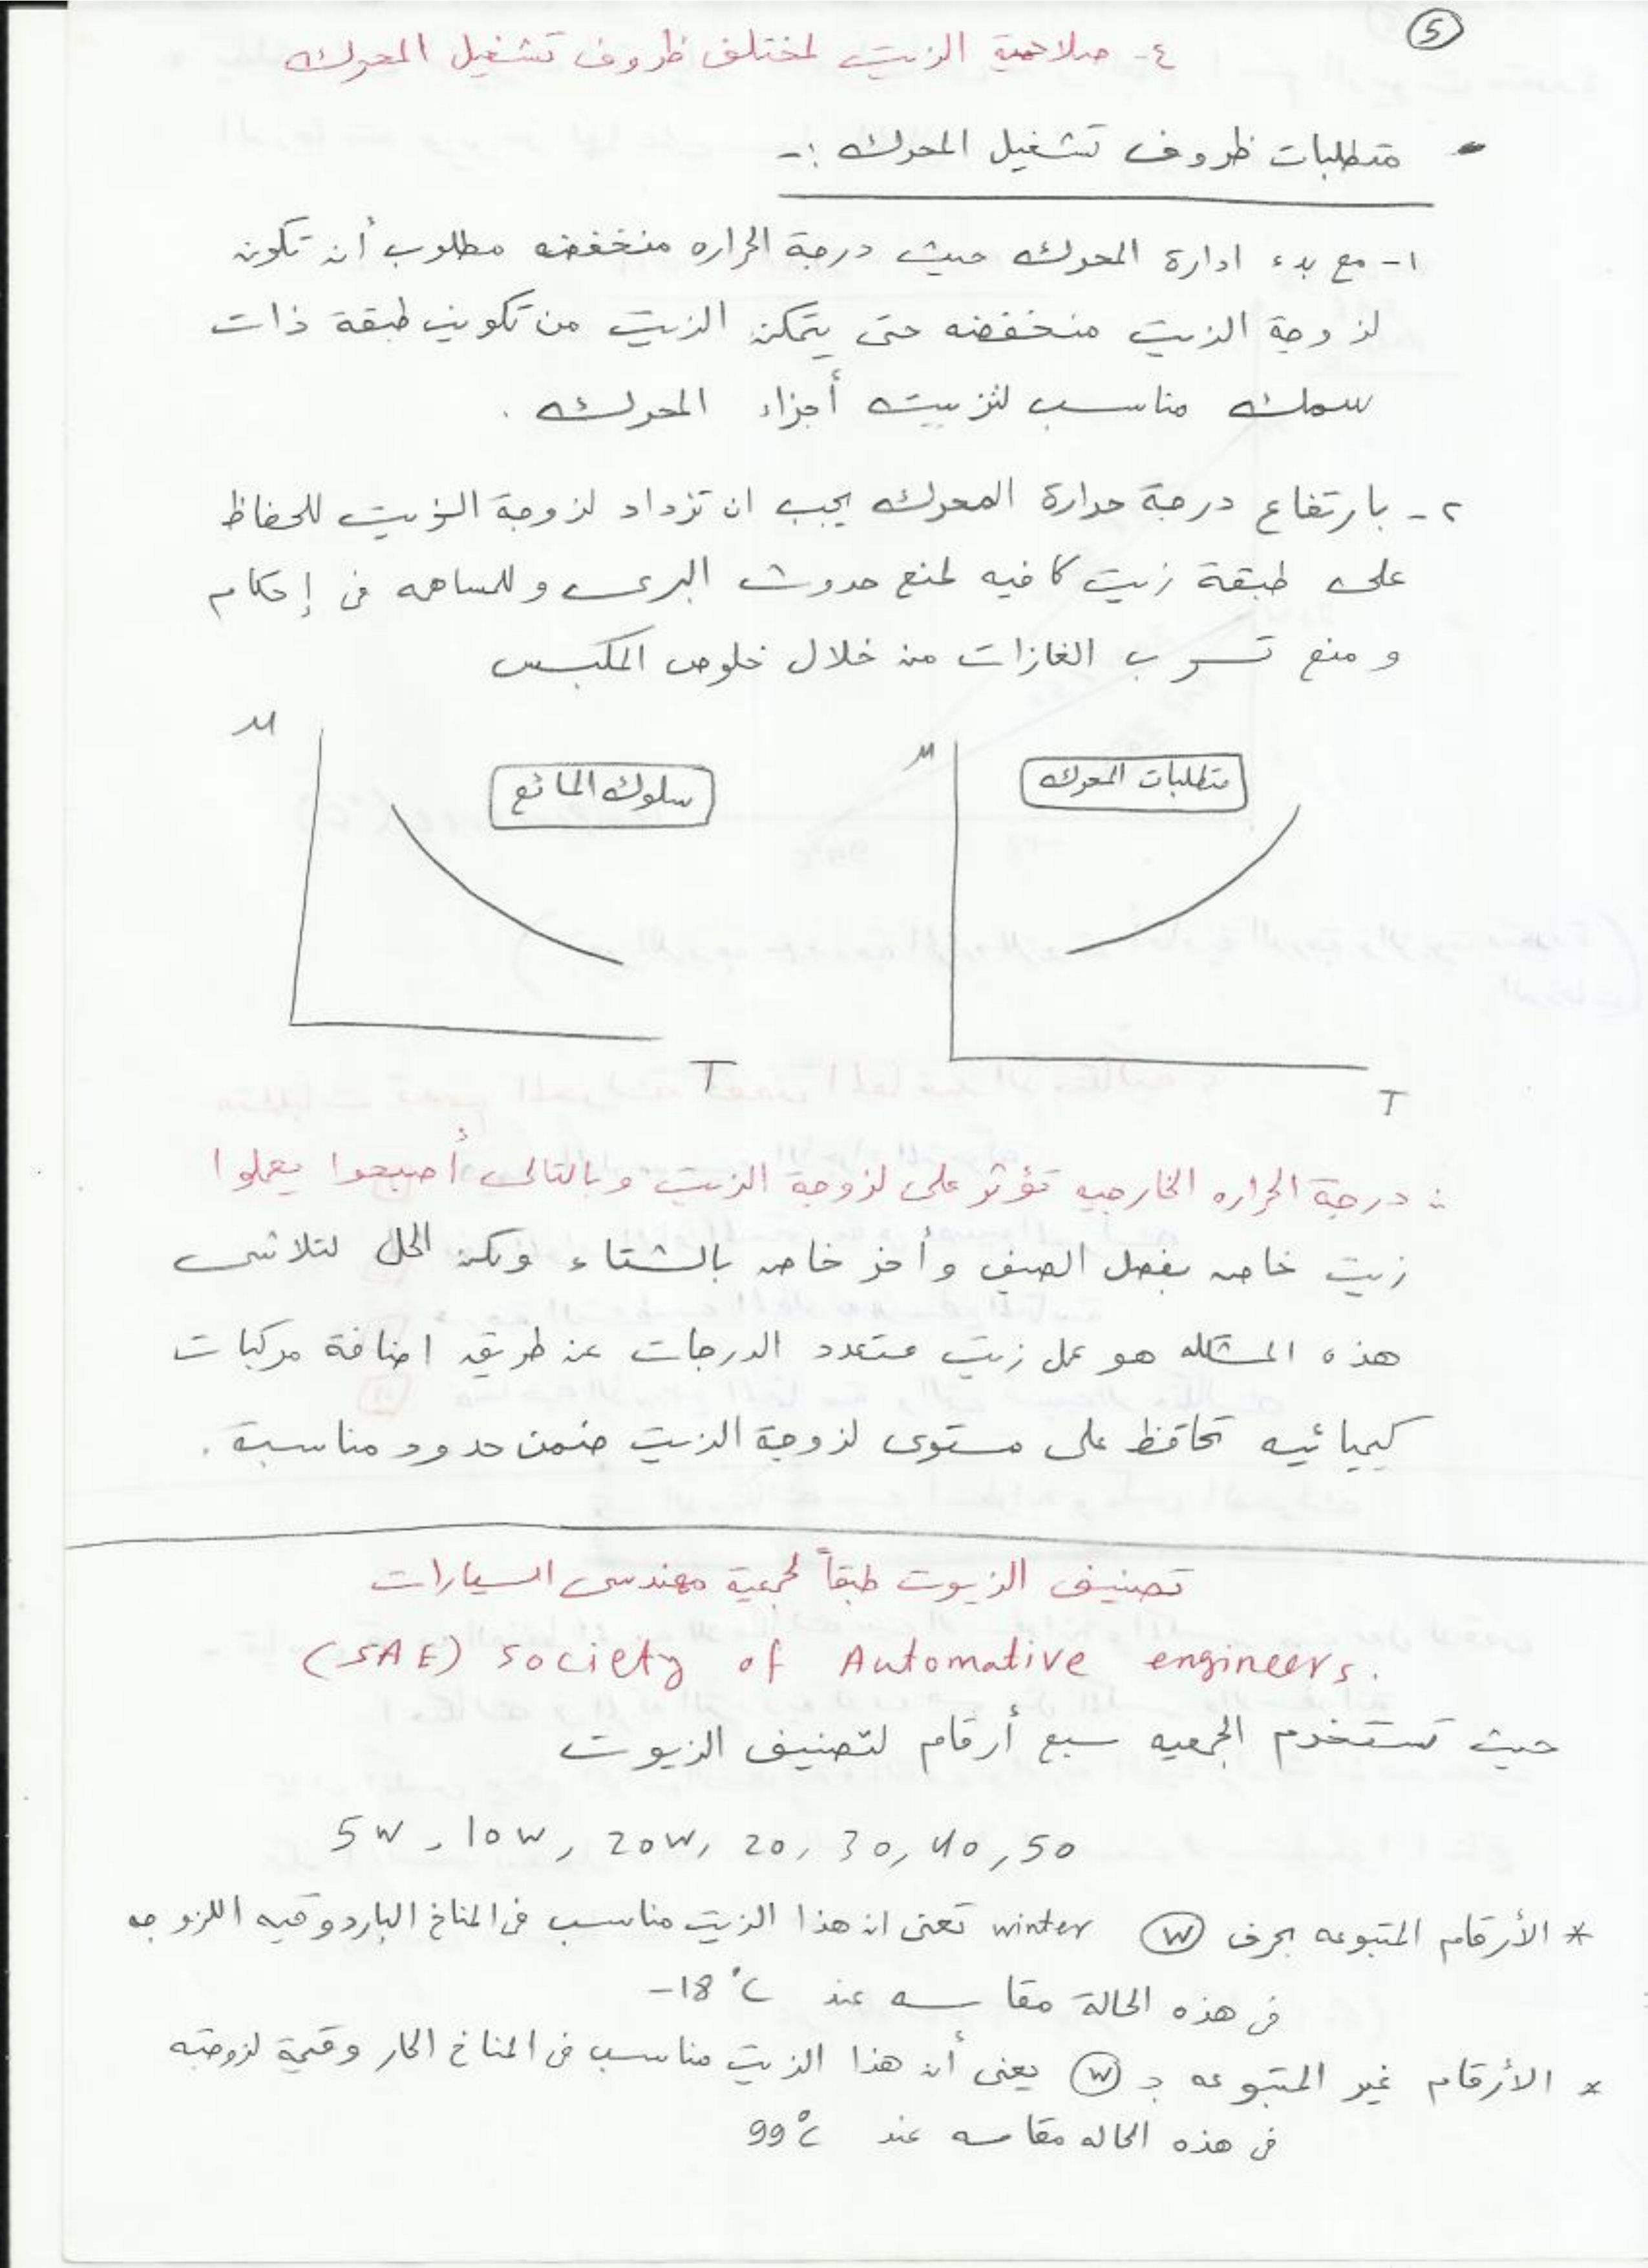 5
٤- صلاحية الزيت لمختلف ظروف تشغيل المحرك
- متطلبات ظروف تشغيل المحرك :-
١- مع بدء ادارة المحرك حيث درجة الحراره منخفضه مطلوب أن تكون
لزوجة الزيت منخفضه حتى يتمكن الزيت من تكوين طبقة ذات
سمك مناسب لتزييت أجزاء المحرك .
٢- بارتفاع درجة حرارة المحرك يجب ان تزداد لزوجة الزيت للحفاظ
على طبقة زيت كافيه لمنع حدوث البرى وللمساهمه فى إحكام
و منع تسرب الغازات من خلال خلوص المكبس
μ
متطلبات المحرك
T
μ
سلوك المائع
T
∵ درجة الحراره الخارجيه تؤثر على لزوجة الزيت وبالتالى أصبحوا يعملوا
زيت خاص بفصل الصيف وأخر خاص بالشتاء ولكن الحل لتلاشى
هذه المشكله هو عمل زيت متعدد الدرجات عن طريق اضافة مركبات
كيميائيه تحافظ على مستوى لزوجة الزيت ضمن حدود مناسبة .
تصنيف الزيوت طبقاً لجمعية مهندسى السيارات
(SAE) Society of Automative engineers.
حيث تستخدم الجمعيه سبع أرقام لتصنيف الزيوت
5W, 10W, 20W, 20, 30, 40, 50
* الأرقام المتبوعه بحرف W winter تعنى ان هذا الزيت مناسب فى المناخ البارد وقيه اللزوجه
فى هذه الحالة مقاسه عند -18°C
* الأرقام غير المتبوعه بـ W يعنى أن هذا الزيت مناسب فى المناخ الحار وقيمة لزوجته
فى هذه الحاله مقاسه عند 99°C